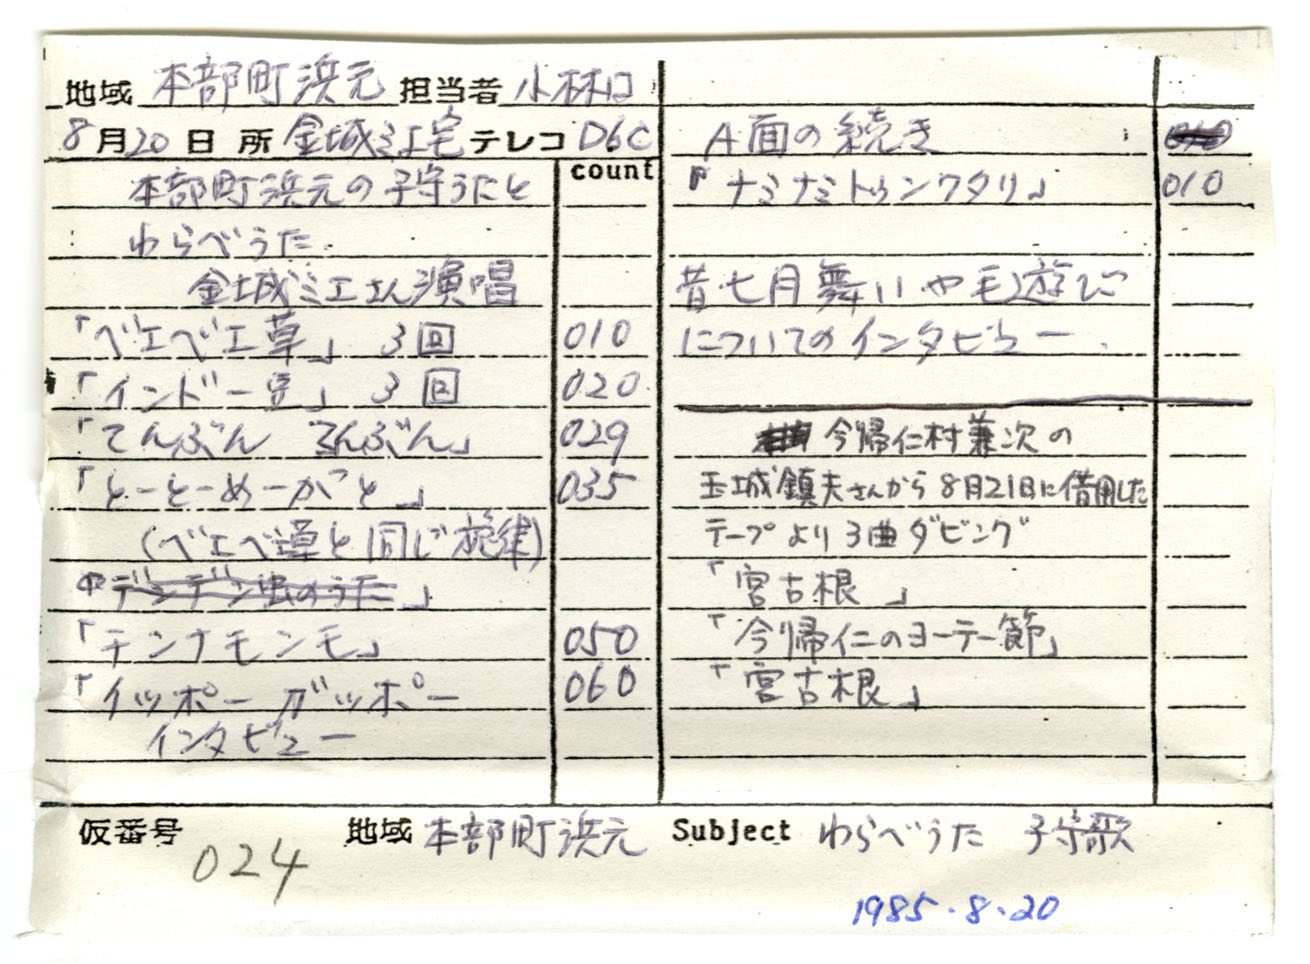 地域 本部町浜元 担当者 小林口
8月20日 所 金城ミエ宅 テレコ D6C
count
本部町浜元の子守うたと
わらべうた
金城ミエさん演唱
「ベエベエ草」 3回 010
「インドー豆」 3回 020
「てんぶん てんぶん」 029
「とーとーめーがと」 035
(ベエベ草と同じ旋律)
「デンデン虫のうた」
「チンナモンモ」 050
「イッポー ガッポー 060
インタビュー
A面の続き
「ナミナミトゥンワタリ」 010
昔七月舞いや毛遊び
についてのインタビュー
今帰仁村兼次の
玉城鎮夫さんから8月21日に借用した
テープより3曲ダビング
「宮古根」
「今帰仁のヨーテー節」
「宮古根」
仮番号 024 地域 本部町浜元 Subject わらべうた 子守歌
1985.8.20